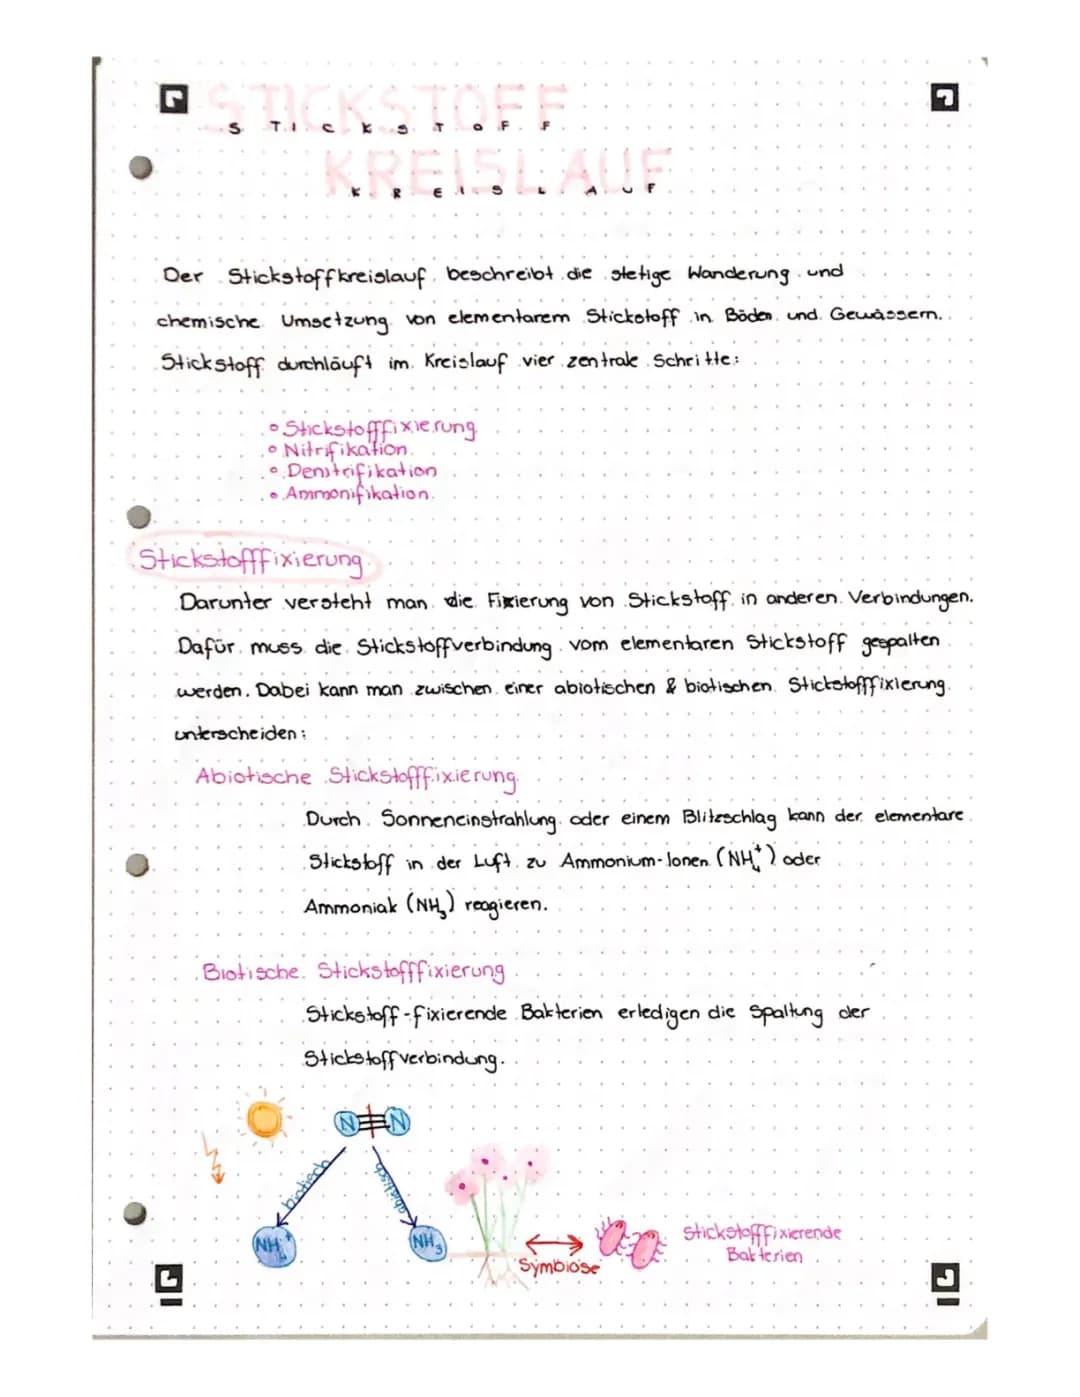 STICKSTOFF
S T I C K S T O F F
KREISLAUF
K R E I S L A U F
Der Stickstoffkreislauf beschreibt die stetige Wanderung und
chemische Umsetzung von elementarem Stickstoff in Böden und Gewässern.
Stickstoff durchläuft im Kreislauf vier zentrale Schritte:
• Stickstofffixierung
• Nitrifikation
• Denitrifikation
• Ammonifikation
Stickstofffixierung
Darunter versteht man die Fixierung von Stickstoff in anderen Verbindungen.
Dafür muss die Stickstoffverbindung vom elementaren Stickstoff gespalten
werden. Dabei kann man zwischen einer abiotischen & biotischen Stickstofffixierung
unterscheiden:
Abiotische Stickstofffixierung
Durch Sonneneinstrahlung oder einem Blitzschlag kann der elementare
Stickstoff in der Luft zu Ammonium-Ionen (NH₄⁺) oder
Ammoniak (NH₃) reagieren.
Biotische Stickstofffixierung
Stickstoff-fixierende Bakterien erledigen die Spaltung der
Stickstoffverbindung.
N≡N
biotisch
abiotisch
NH₄⁺
NH₃
Symbiose
Stickstofffixierende
Bakterien